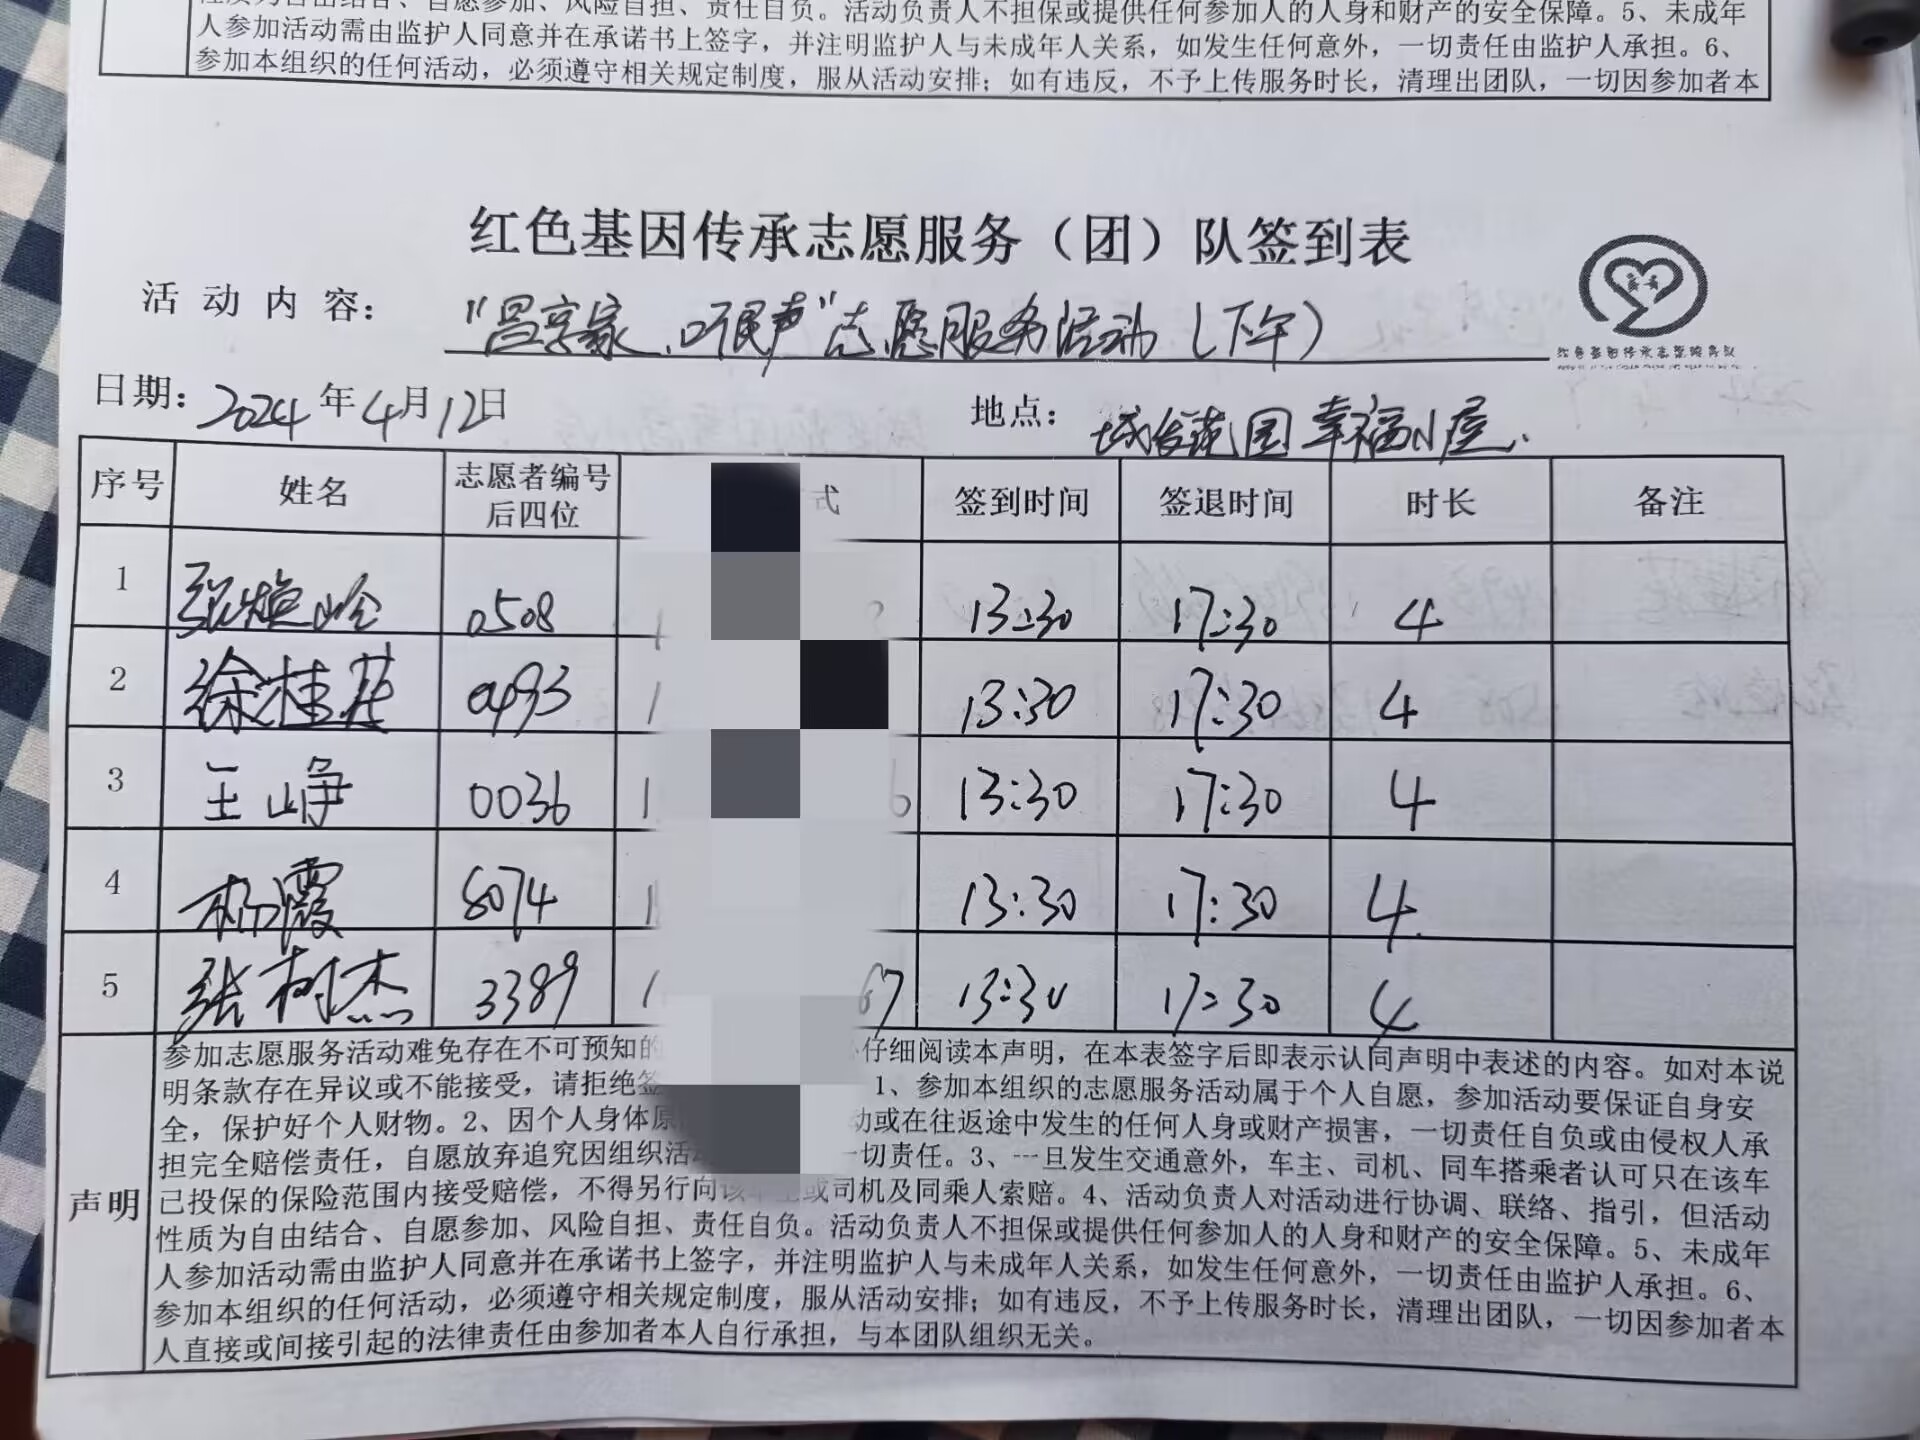 性质为自由结合、自愿参加、风险自担、责任自负。活动负责人不担保或提供任何参加人的人身和财产的安全保障。5、未成年
人参加活动需由监护人同意并在承诺书上签字，并注明监护人与未成年人关系，如发生任何意外，一切责任由监护人承担。6、
参加本组织的任何活动，必须遵守相关规定制度，服从活动安排；如有违反，不予上传服务时长，清理出团队，一切因参加者本
红色基因传承志愿服务（团）队签到表
活动内容： "昌享家、听民声"志愿服务活动（下午）
红色基因传承志愿服务队
日期：2024年4月12日 地点： 城长范园幸福小屋.
序号 姓名 志愿者编号后四位 式 签到时间 签退时间 时长 备注
1 张焕岭 0508 1 13:30 17:30 4
2 徐桂芬 0493 1 13:30 17:30 4
3 王峥 0036 1 6 13:30 17:30 4
4 杨霞 8074 1 13:30 17:30 4
5 张树杰 3389 1 67 13:30 17:30 4
声明
参加志愿服务活动难免存在不可预知的 仔细阅读本声明，在本表签字后即表示认同声明中表述的内容。如对本说
明条款存在异议或不能接受，请拒绝签 1、参加本组织的志愿服务活动属于个人自愿，参加活动要保证自身安
全，保护好个人财物。2、因个人身体原 动或在往返途中发生的任何人身或财产损害，一切责任自负或由侵权人承
担完全赔偿责任，自愿放弃追究因组织活动 一切责任。3、一旦发生交通意外，车主、司机、同车搭乘者认可只在该车
已投保的保险范围内接受赔偿，不得另行向该车主或司机及同乘人索赔。4、活动负责人对活动进行协调、联络、指引，但活动
性质为自由结合、自愿参加、风险自担、责任自负。活动负责人不担保或提供任何参加人的人身和财产的安全保障。5、未成年
人参加活动需由监护人同意并在承诺书上签字，并注明监护人与未成年人关系，如发生任何意外，一切责任由监护人承担。6、
参加本组织的任何活动，必须遵守相关规定制度，服从活动安排；如有违反，不予上传服务时长，清理出团队，一切因参加者本
人直接或间接引起的法律责任由参加者本人自行承担，与本团队组织无关。